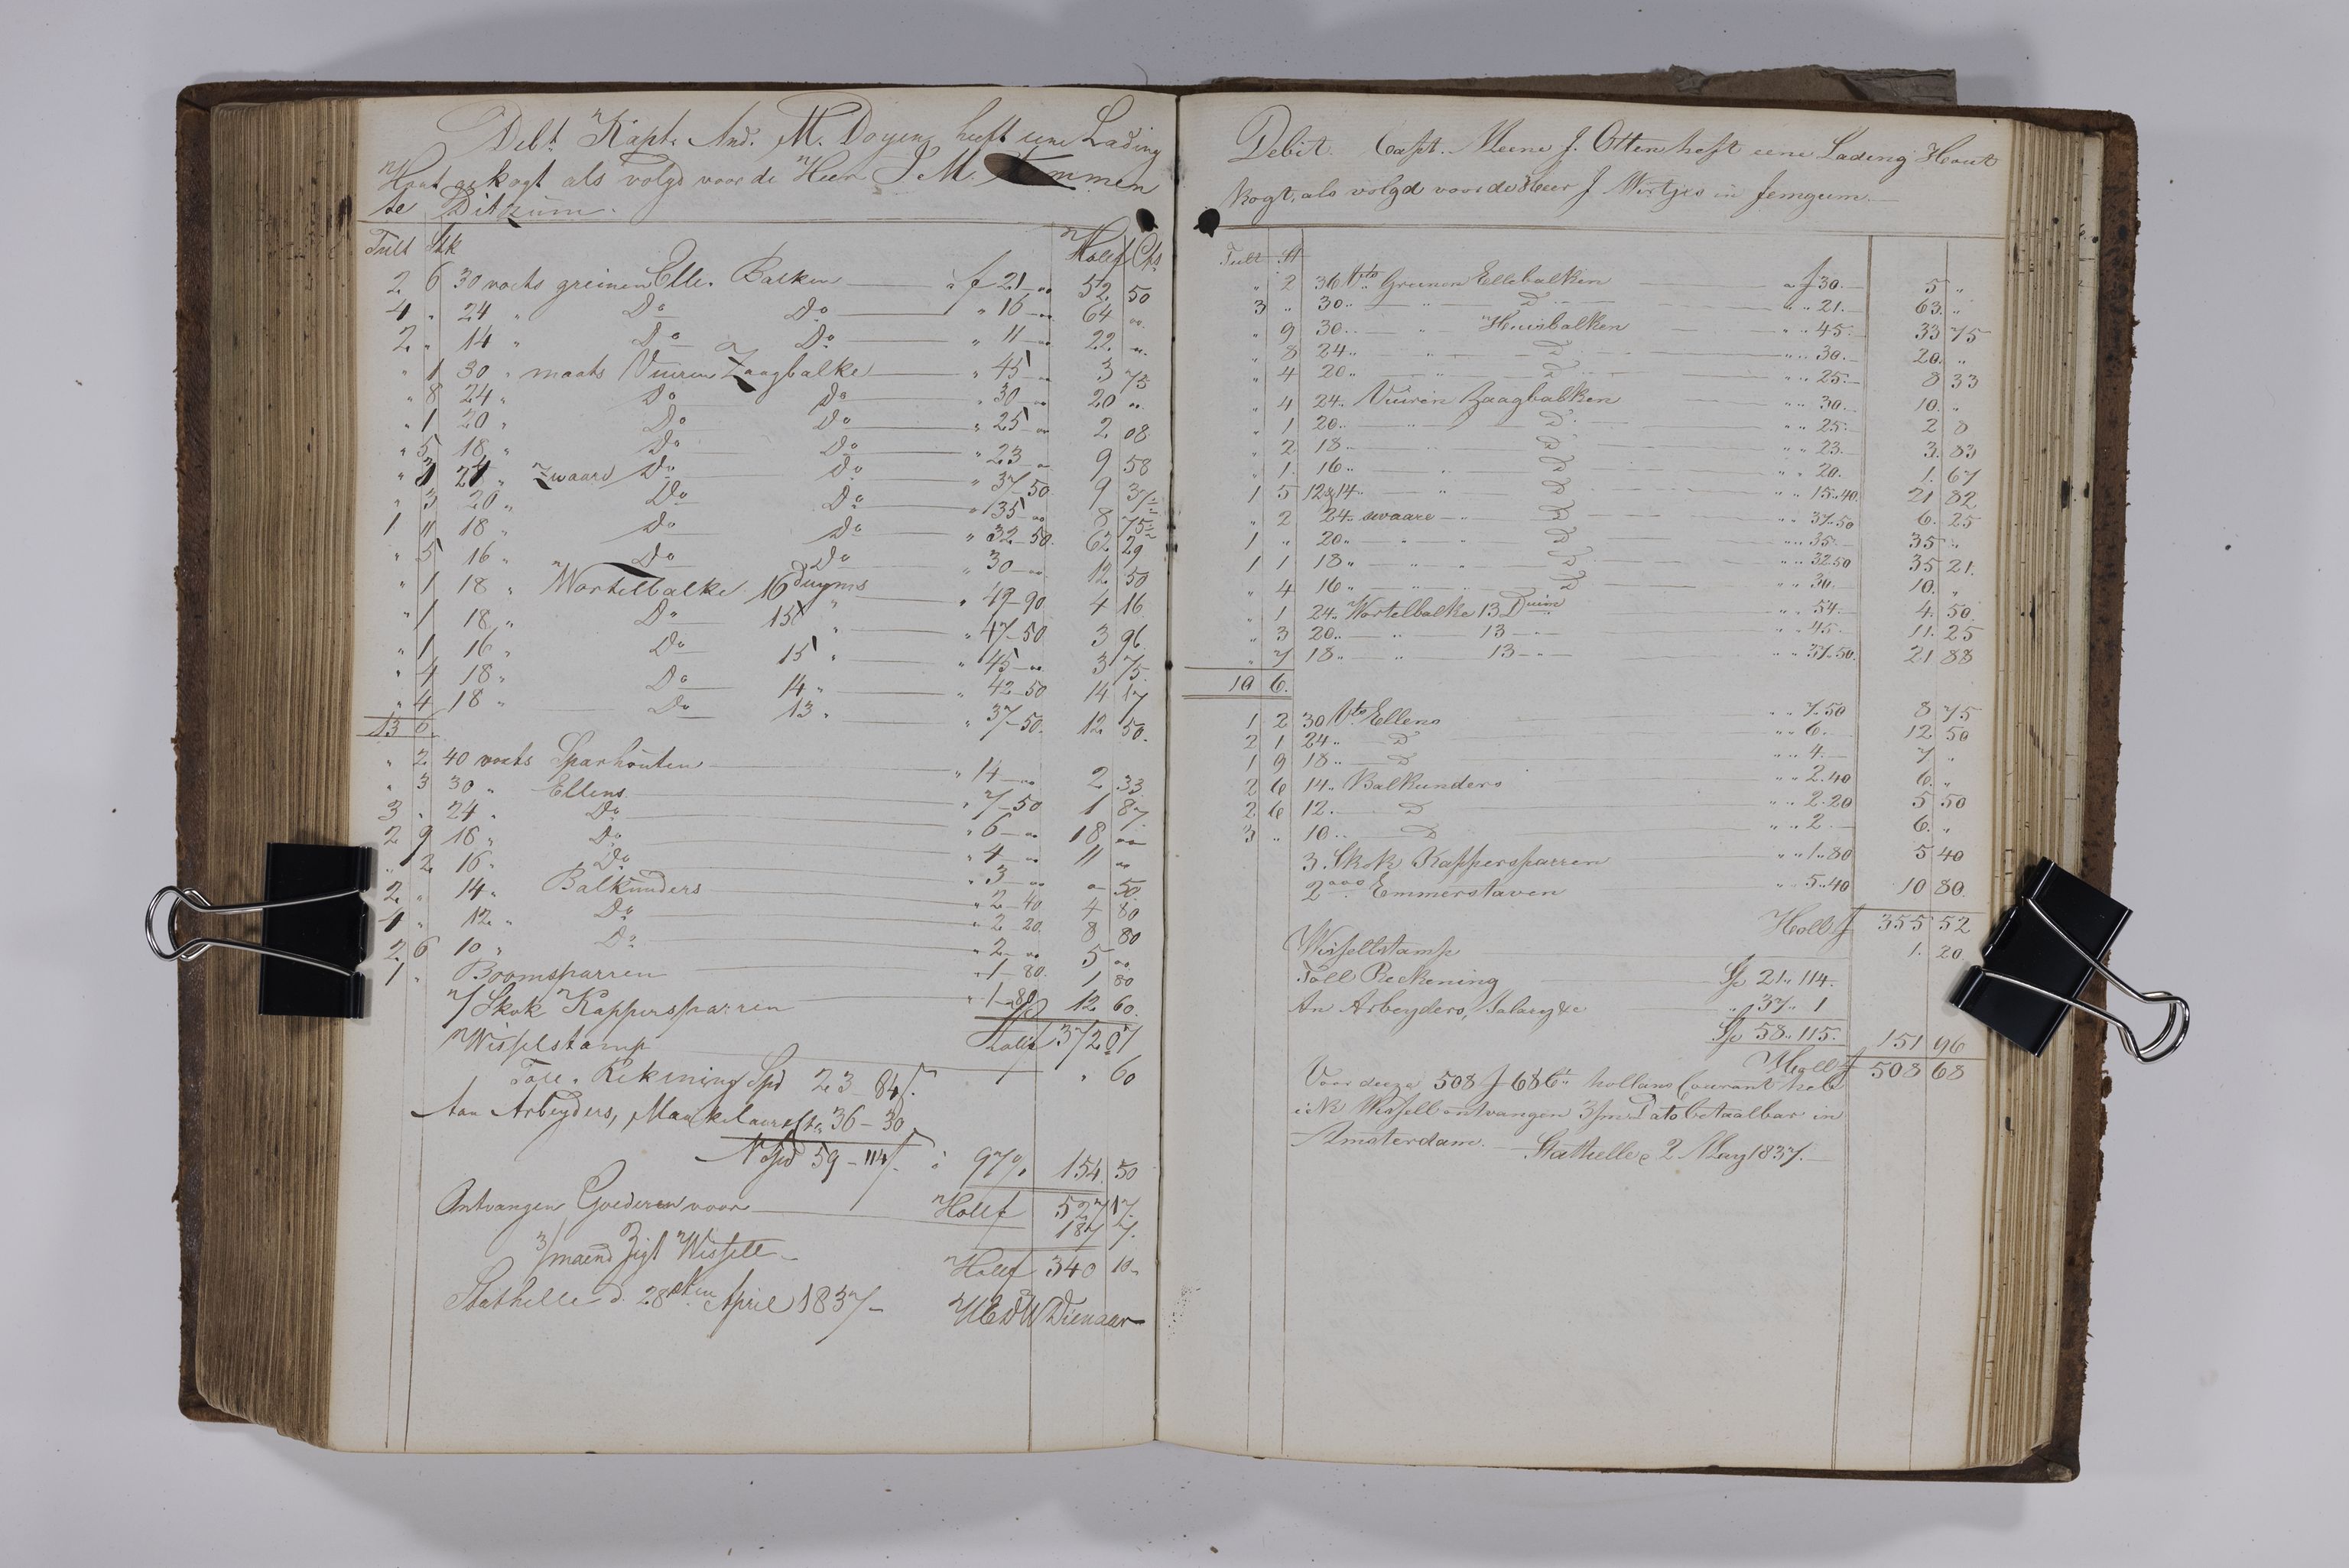 Debt. Kapt. And. M. Doyen heeft eene Lading
Hout gekogt als volgd voor de Heer J M.
te Ditzum.
Tult Stk Hollf Cts
2 6 30 voets greinen Elle. Balken à f 21 - „ 52 50
4 „ 24 „ Do Do „ 16 - „ 64 „
2 „ 14 „ Do a Do „ 11 - „ 22 „
„ 1 30 „ maats Vuuren Zaagbalke „ 45 - „ 3 75
„ 8 24 „ Do Do „ 30 - „ 20 „
„ 1 20 „ Do Do „ 25 - „ 2 08
„ 5 18 „ Do Do „ 23 - „ 9 58
„ 3 24 „ Zwaard Do Do „ 37-50 9 37
„ 3 20 „ Do Do „ 35 - „ 8 75
1 11 18 „ Do Do „ 32-50 62 29
„ 5 16 „ Do Do „ 30 - „ 12 50
„ 1 18 „ Wortelbalke 16 duyms „ 49-90 4 16
„ 1 18 „ Do 15 „ „ 47-50 3 96
„ 1 16 „ Do 15 „ „ 45 - „ 3 75
„ 4 18 „ Do 14 „ „ 42-50 14 17
„ 4 18 „ Do 13 „ „ 37-50 12 50
13 6
„ 2 40 voets Sparhouten „ 14 - „ 2 33
„ 3 30 „ Ellens „ 7-50 1 87
3 „ 24 „ Do „ 6 - „ 18 „
2 9 18 „ Do „ 4 - „ 11 „
„ 2 16 „ Do „ 3 - „ „ 50
2 „ 14 „ Balkunders „ 2-40 4 80
4 „ 12 „ Do „ 2-20 8 80
2 6 10 „ Do „ 2 - „ 5 „
1 „ Boomsparren „ 1-80 1 80
7 Skok Kappersparren „ 1-80 12 60
Hollf 372 07
Wisselstamp „ 60
Toll. Rekening Spd 23-84
Aan Arbeyders, Maakelaars &c 36-30
Spd 59-114 à 97 % 154 50
Hollf 527 17
Ontvangen Goederen voor 187 7
3/maend Zigt Wissell Hollf 340 10
Stathelle d. 28sten April 1837 UEdW Dienaar
Debit. Capt. Meene J. Otten heft eene Lading Hout
kogt, als volgd voor de Heer J. Wirtjes in Jemgum.
Tult St
„ 2 36 Vts Greenen Ellebalken a f 30. 5 „
3 „ 30 „ „ D „ „ 21. 63. „
„ 9 30 „ „ Huisbalken „ „ 45. 33 75
„ 8 24 „ „ D „ „ 30. 20. „
„ 4 20 „ „ D „ „ 25. 8 33
„ 4 24 „ Vuuren Zaagbalken „ „ 30. 10. „
„ 1 20 „ „ D „ „ 25. 2 8
„ 2 18 „ „ D „ „ 23. 3. 83
„ 1. 16 „ „ D „ „ 20. 1. 67
1 5 12 & 14 „ „ D „ „ 15.40 21 82
„ 2 24 „ swaare „ D „ „ 37.50 6. 25
1 „ 20 „ „ „ D „ „ 35. 35 „
1 1 18 „ „ „ D „ „ 32.50 35 21.
„ 4 16 „ „ „ D „ „ 30. 10. „
„ 1 24 „ Wortelbalke 13 Duim „ „ 54. 4. 50
„ 3 20 „ „ 13 „ „ „ 45. 11. 25
„ 7 18 „ „ 13 „ „ „ 37.50. 21 88
10 6.
1 2 30 Vts Ellens „ „ 7.50 8 75
2 1 24 „ D „ „ 6. 12 50
1 9 18 „ D „ „ 4. 7 „
2 6 14 „ Balkunders „ „ 2.40 6. „
2 6 12. D „ „ 2.20 5 50
3 „ 10 „ D „ „ 2 6. „
3 Skok Kappersparren „ „ 1.80 5 40
2000 Emmerstaven „ „ 5.40 10 80.
Holl f 355 52
Wisselstamp 1. 20
Toll Reckening Sp 21. 114.
An Arbeyders, Salary &c „ 37. 1
Sp 58. 115. 151 96
Holl f 508 68
Voor deeze 508 f 68 Ct hollans Courant heb
ick Wissell ontvangen 3/m Dato betaalbar in
Amsterdam. Stathelle, 2 May 1837.